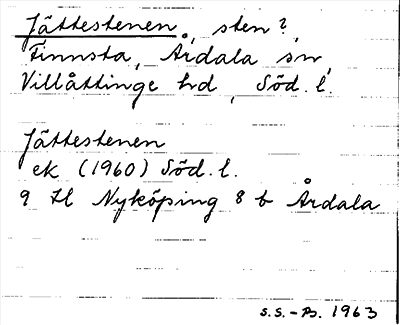 Jättestenen, sten?,
Finnsta, Årdala sn,
Villåttinge hd, Söd. l.
Jättestenen
ek (1960) Söd. l.
9 H Nyköping 8 b Årdala
S.S.-B. 1963